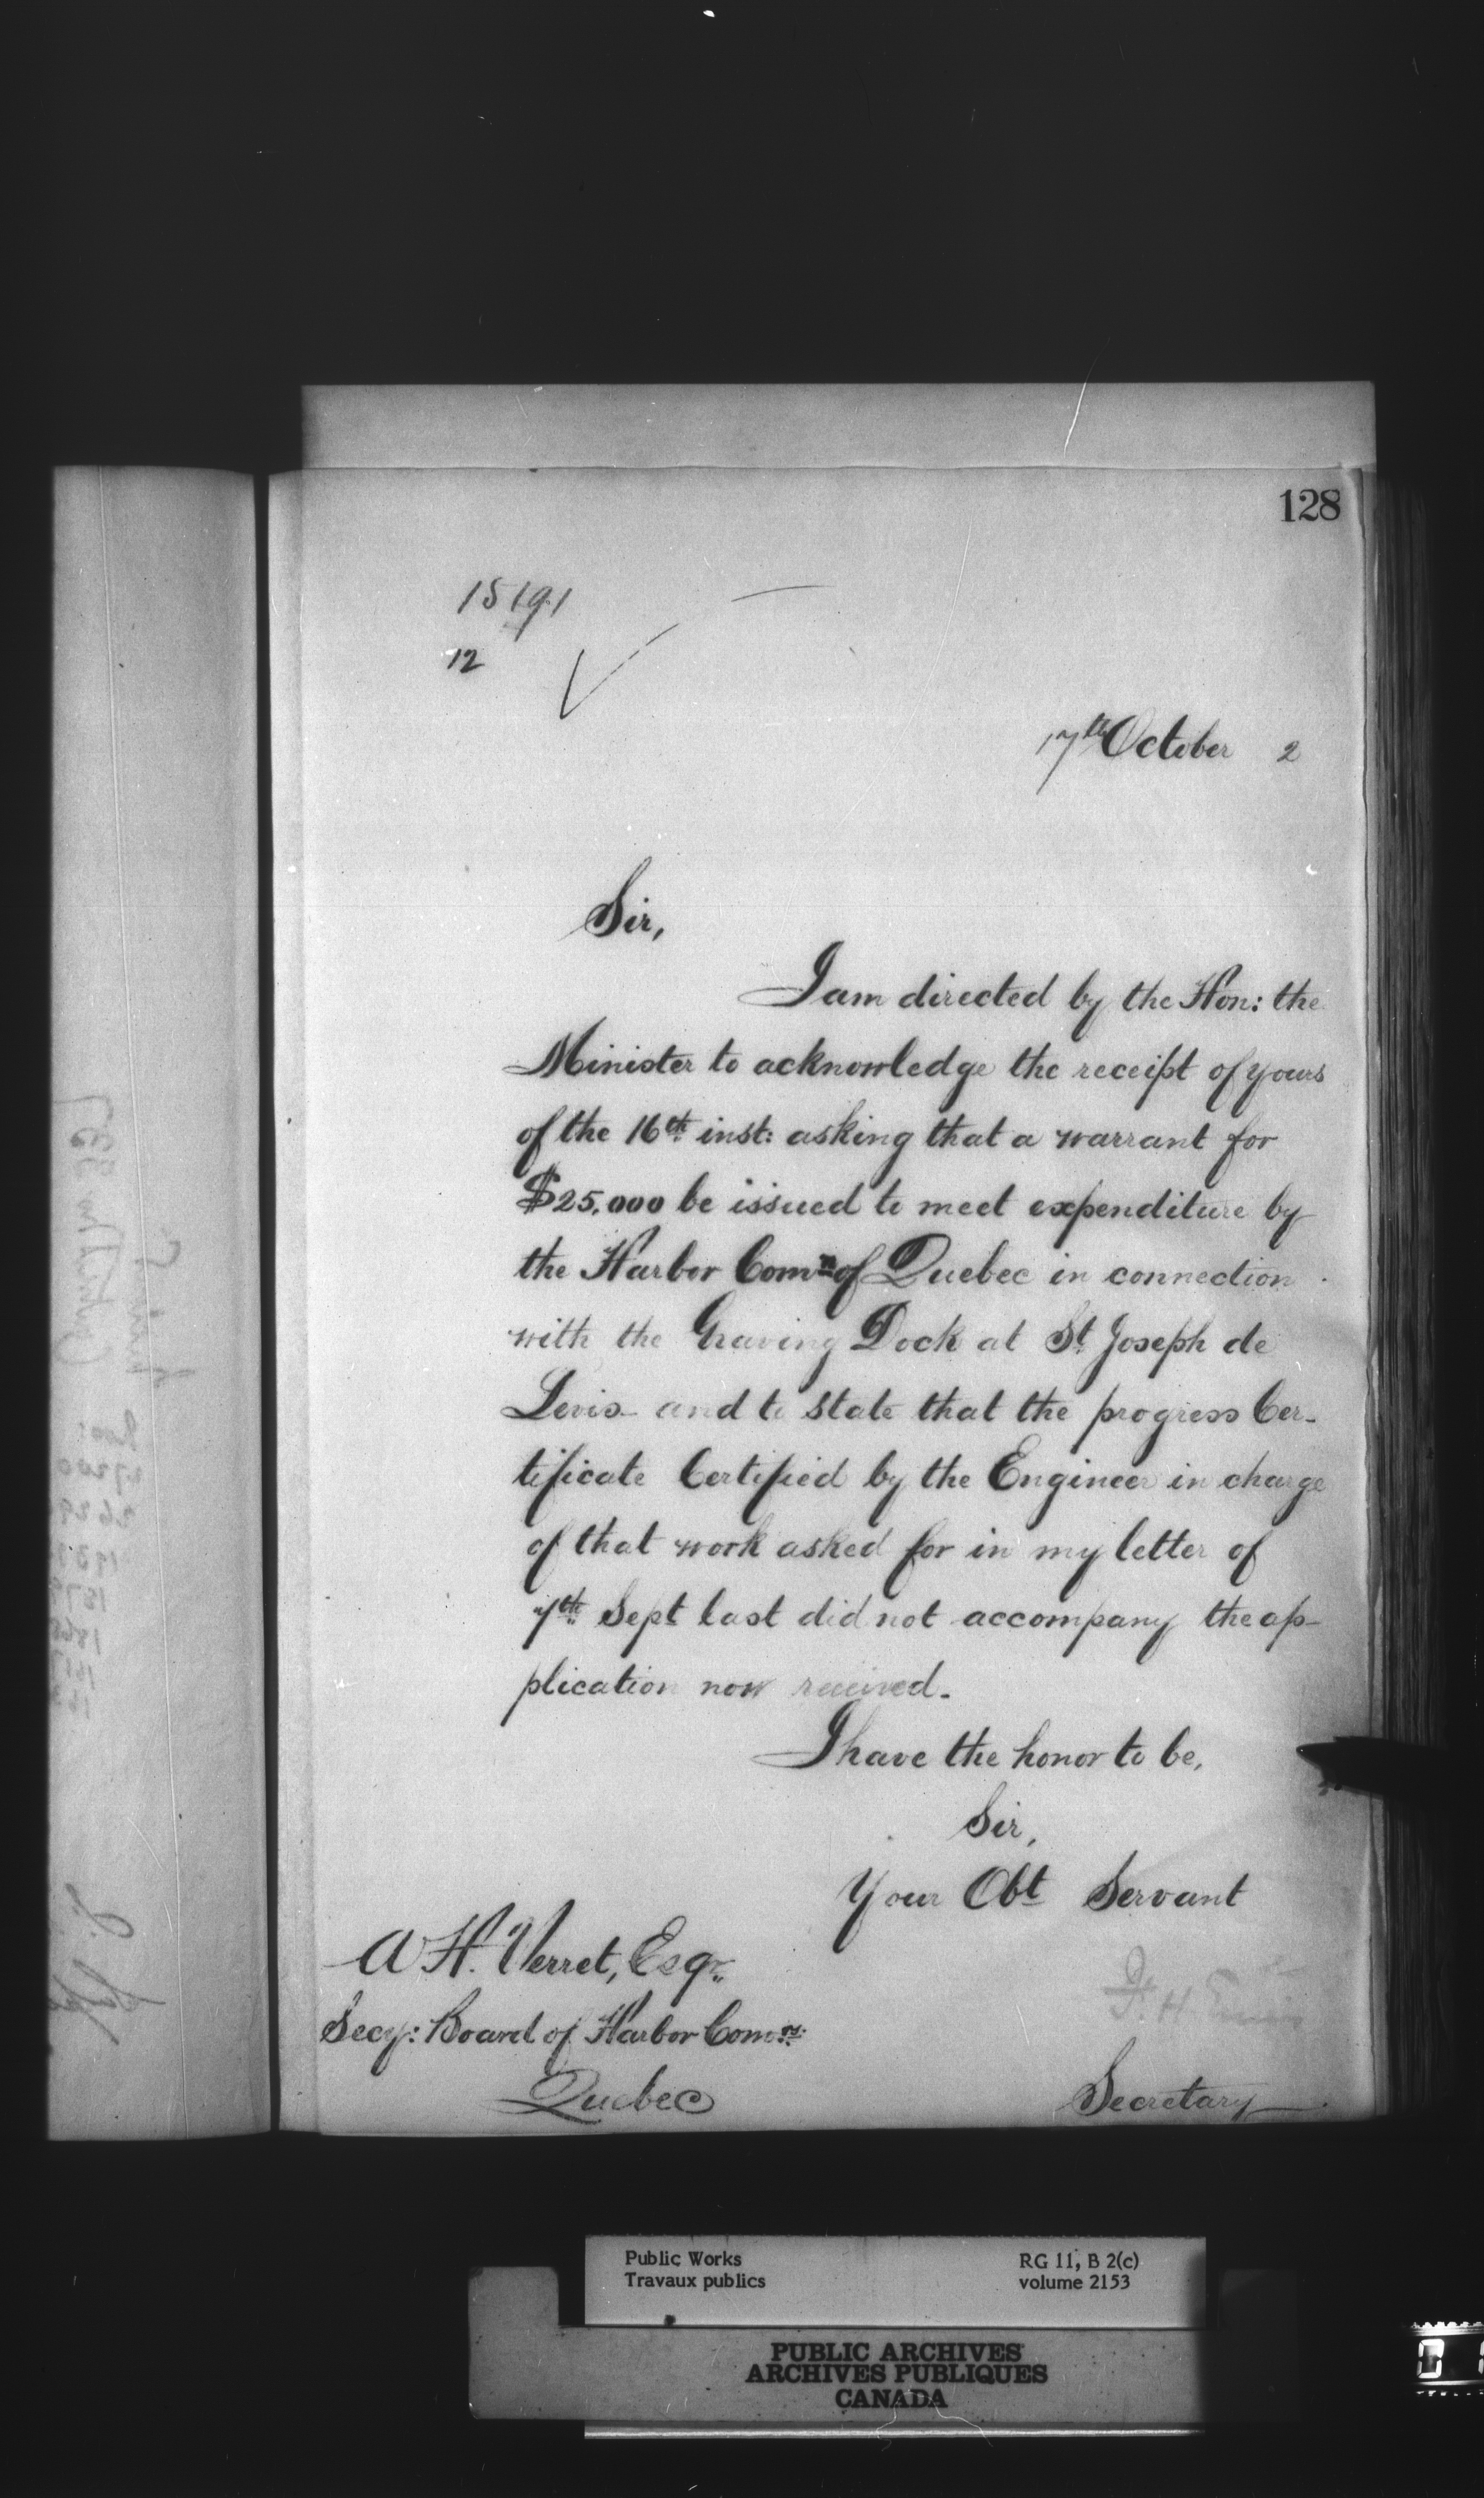 128
15191
12
17th October 2
Sir,
I am directed by the Hon: the
Minister to acknowledge the receipt of yours
of the 16th inst: asking that a warrant for
$25,000 be issued to meet expenditure by
the Harbor Comn of Quebec in connection
with the Graving Dock at St Joseph de
Levis and to state that the progress Cer-
tificate Certified by the Engineer in charge
of that work asked for in my letter of
7th Sept last did not accompany the ap-
plication now received.
I have the honor to be,
Sir,
Your Obt Servant
A H. Verret, Esqr.
Secy: Board of Harbor Comrs:
Quebec
F. H.
Secretary
Public Works
Travaux publics
RG 11, B 2(c)
volume 2153
PUBLIC ARCHIVES
ARCHIVES PUBLIQUES
CANADA